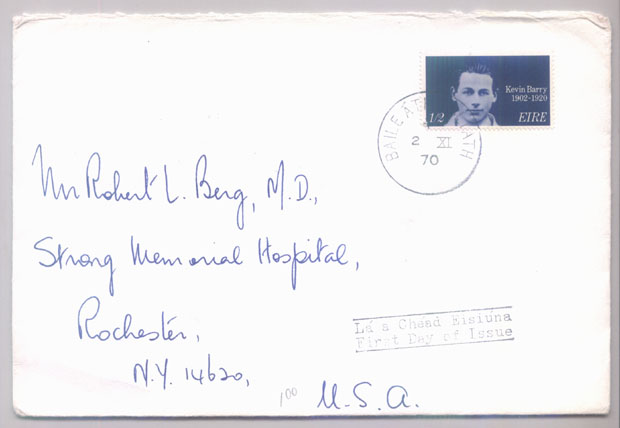 Kevin Barry
1902-1920
1/2 EIRE
BAILE ÁTHA CLIATH
2 XI
70
Mr Robert L. Berg, M.D.,
Strong Memorial Hospital,
Rochester,
N.Y. 14620,
U.S.A.
100
Lá a Chéad Eisiúna
First Day of Issue